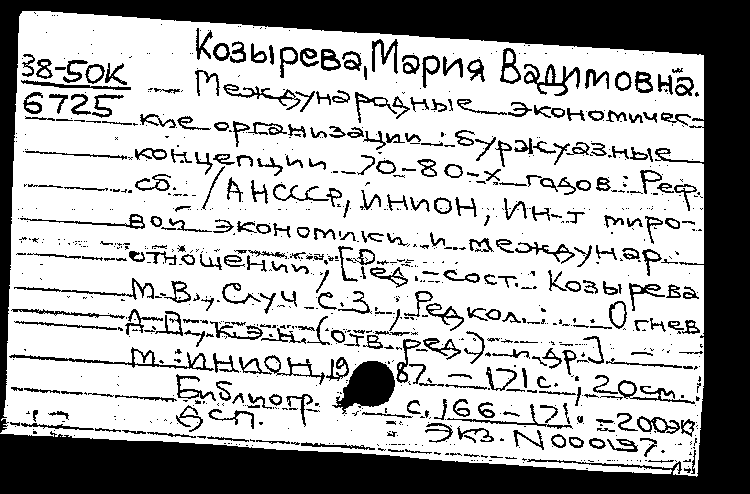 Козырева, Мария Вадимовна.
38-50К
6725
— Международные экономичес-
кие организации: буржуазные
концепции 70-80-х гадов: Реф.
сб. / АН СССР, ИНИОН, Ин-т миро-
вой экономики и междунар.
отношений; [Ред.-сост.: Козырева
М.В., Случ С.З.; Редкол.: ... Огнев
А.П., к.э.н. (отв. ред.) и др.]. —
М.: ИНИОН, 1987. — 171 с.; 20 см.
Библиогр. с. 166-171. = 200 эк
ДСП. = Экз. N 000197.